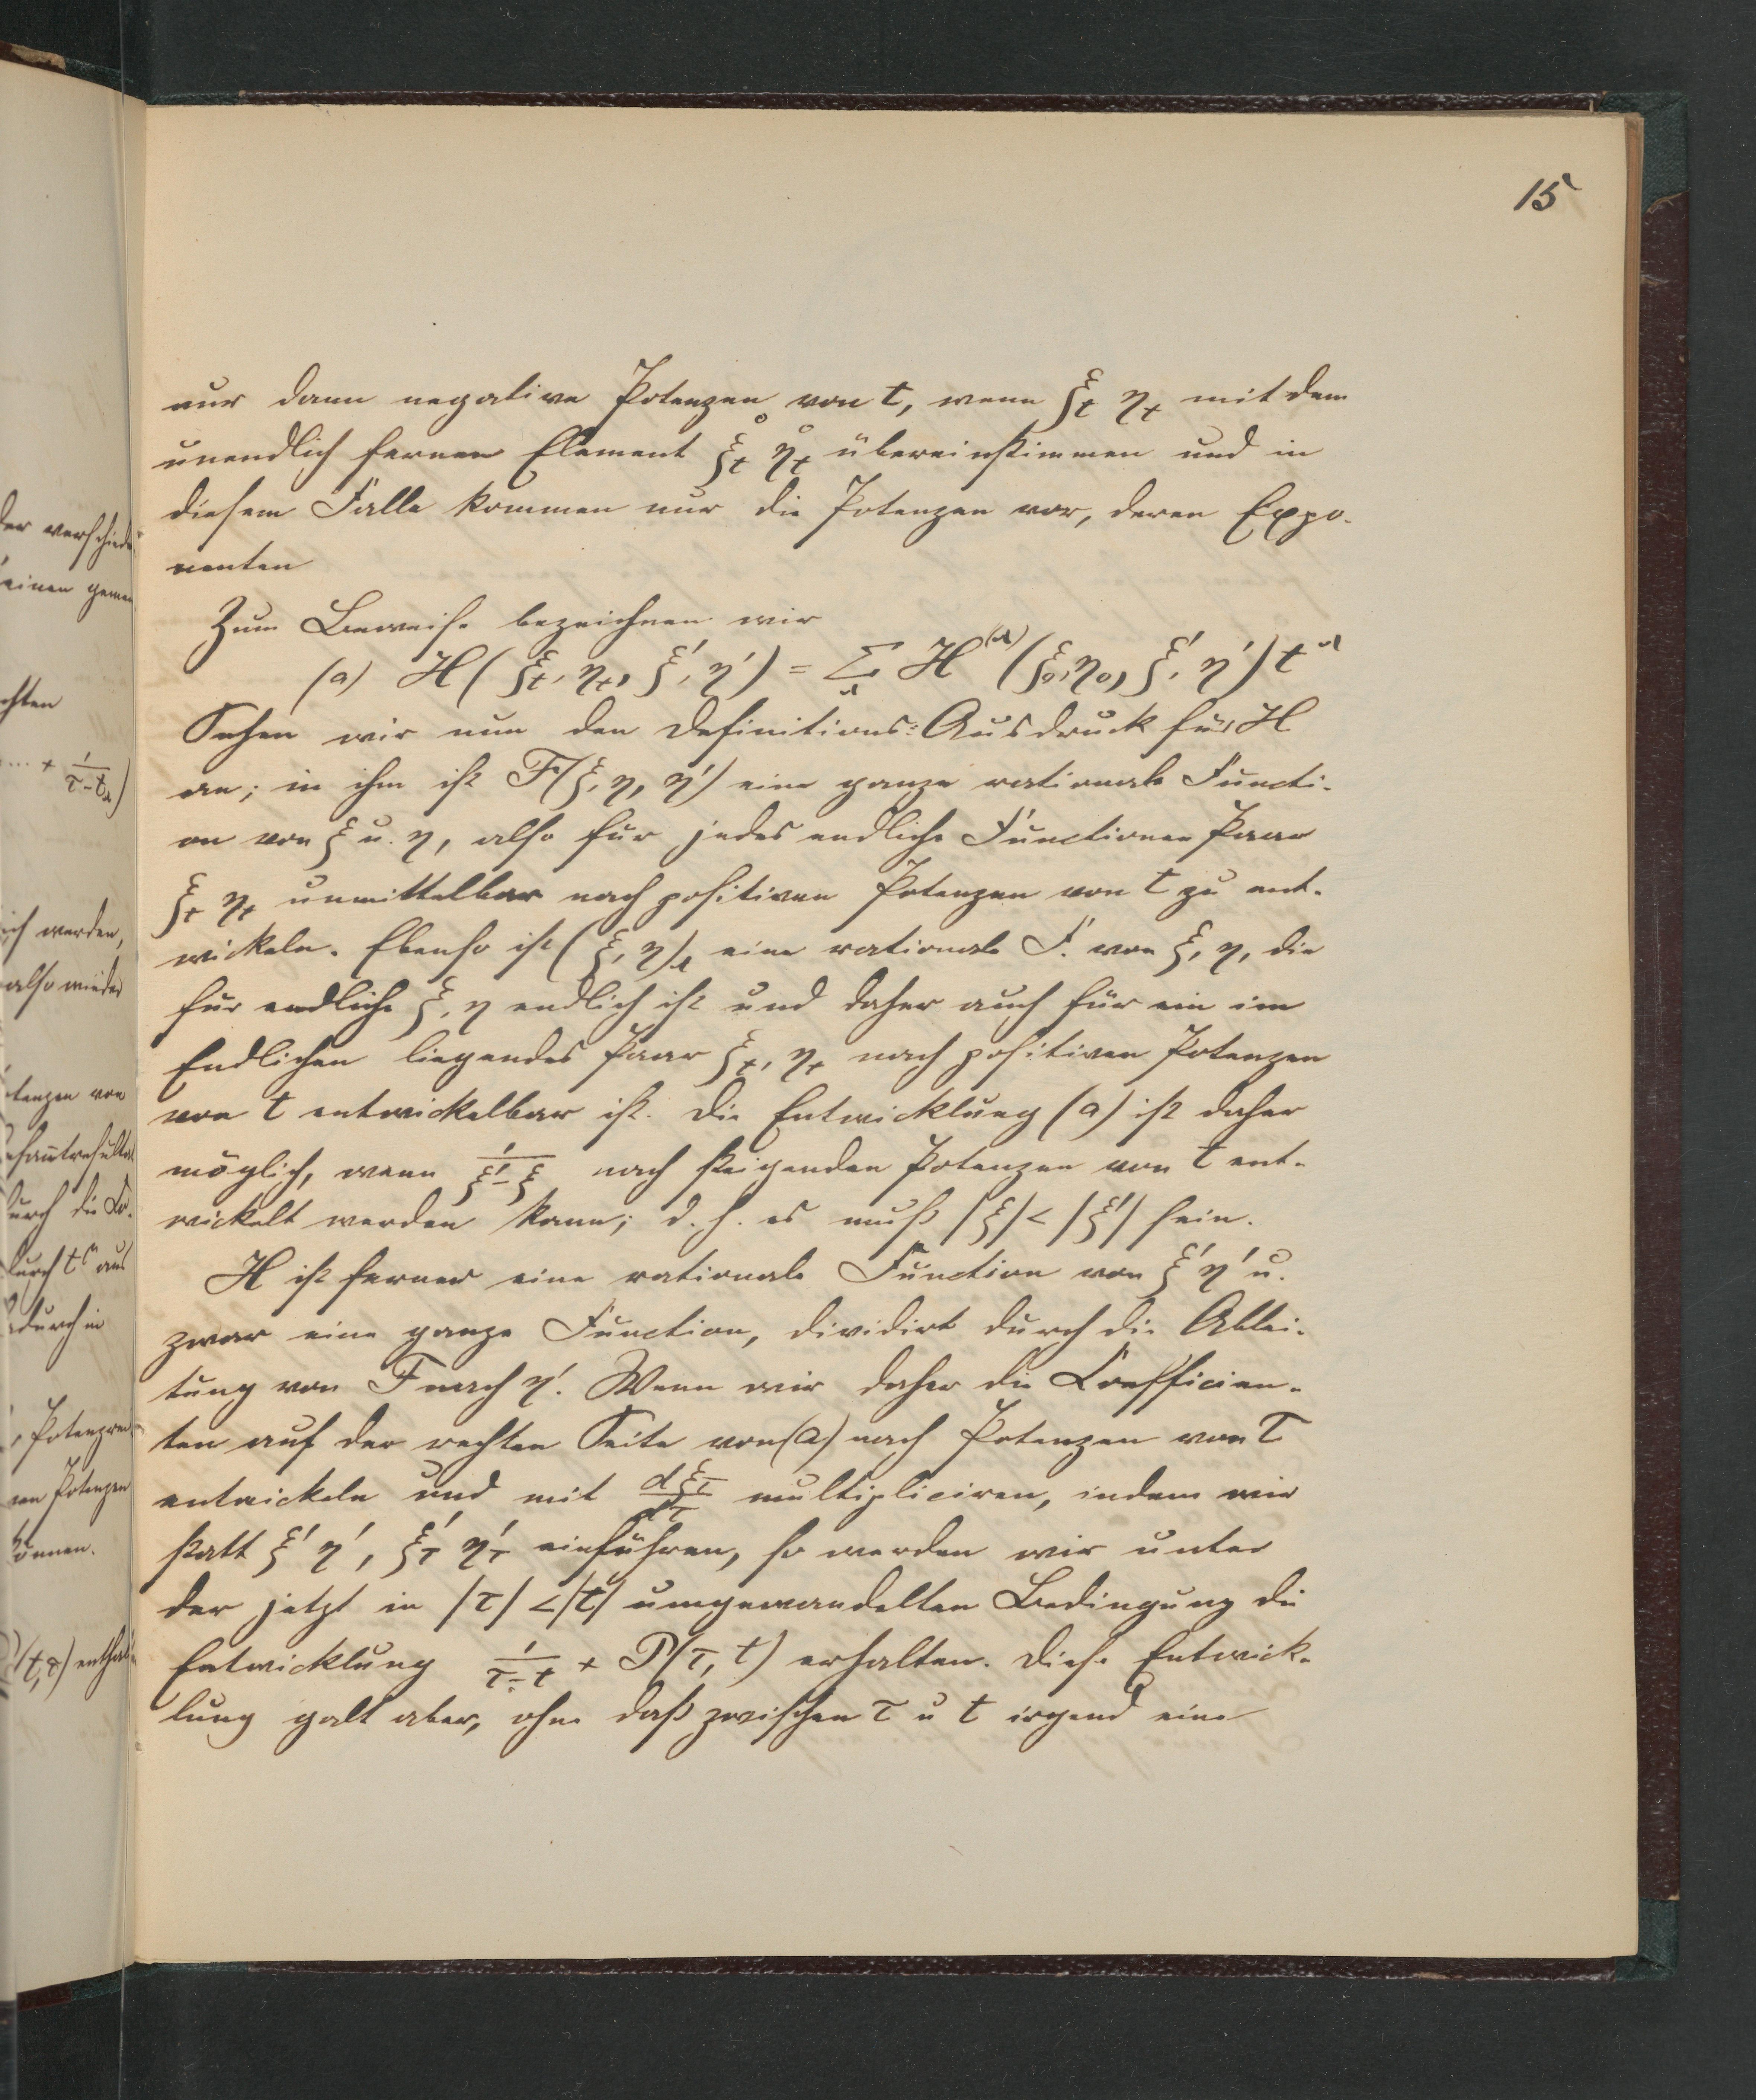 15
nur dann negative Potenzen von t, wenn ξₜ ηₜ mit dem
unendlich fernen Element ξ̊ₜ η̊ₜ übereinstimmen und in
diesem Falle kommen nur die Potenzen vor, deren Expo-
nenten
Zum Beweise bezeichnen wir
(a) H(ξₜ, ηₜ, ξ′, η′) = Σ_μ H^(μ) (ξ₀, η₀, ξ′, η′) t^μ
Sehen wir nun den Definitions-Ausdruck für H
an; in ihm ist F(ξ, η, η′) eine ganze rationale Functi-
on von ξ u. η, also für jedes endliche Functionen Paar
ξₜ ηₜ unmittelbar nach positiven Potenzen von t zu ent-
wickeln. Ebenso ist (ξ, η)_μ eine rationale F. von ξ, η, die
für endliche ξ, η endlich ist und daher auch für ein im
Endlichen liegendes Paar ξₜ, ηₜ nach positiven Potenzen
von t entwickelbar ist. Die Entwicklung (a) ist daher
möglich, wenn 1/(ξ′-ξ) nach steigenden Potenzen von t ent-
wickelt werden kann; d. h. es muß |ξ| < |ξ′| sein.
H ist ferner eine rationale Function von ξ′ η′ u.
zwar eine ganze Function, dividirt durch die Ablei-
tung von F nach η′. Wenn wir daher die Coefficien-
ten auf der rechten Seite von (a) nach Potenzen von τ
entwickeln und mit dξ_τ/dτ multipliciren, indem wir
statt ξ′ η′, ξ′_τ η′_τ einführen, so werden wir unter
der jetzt in |τ| < |t| umgewandelten Bedingung die
Entwicklung 1/(τ-t) + P(τ, t) erhalten. Diese Entwick-
lung galt aber, ohne daß zwischen τ u t irgend eine